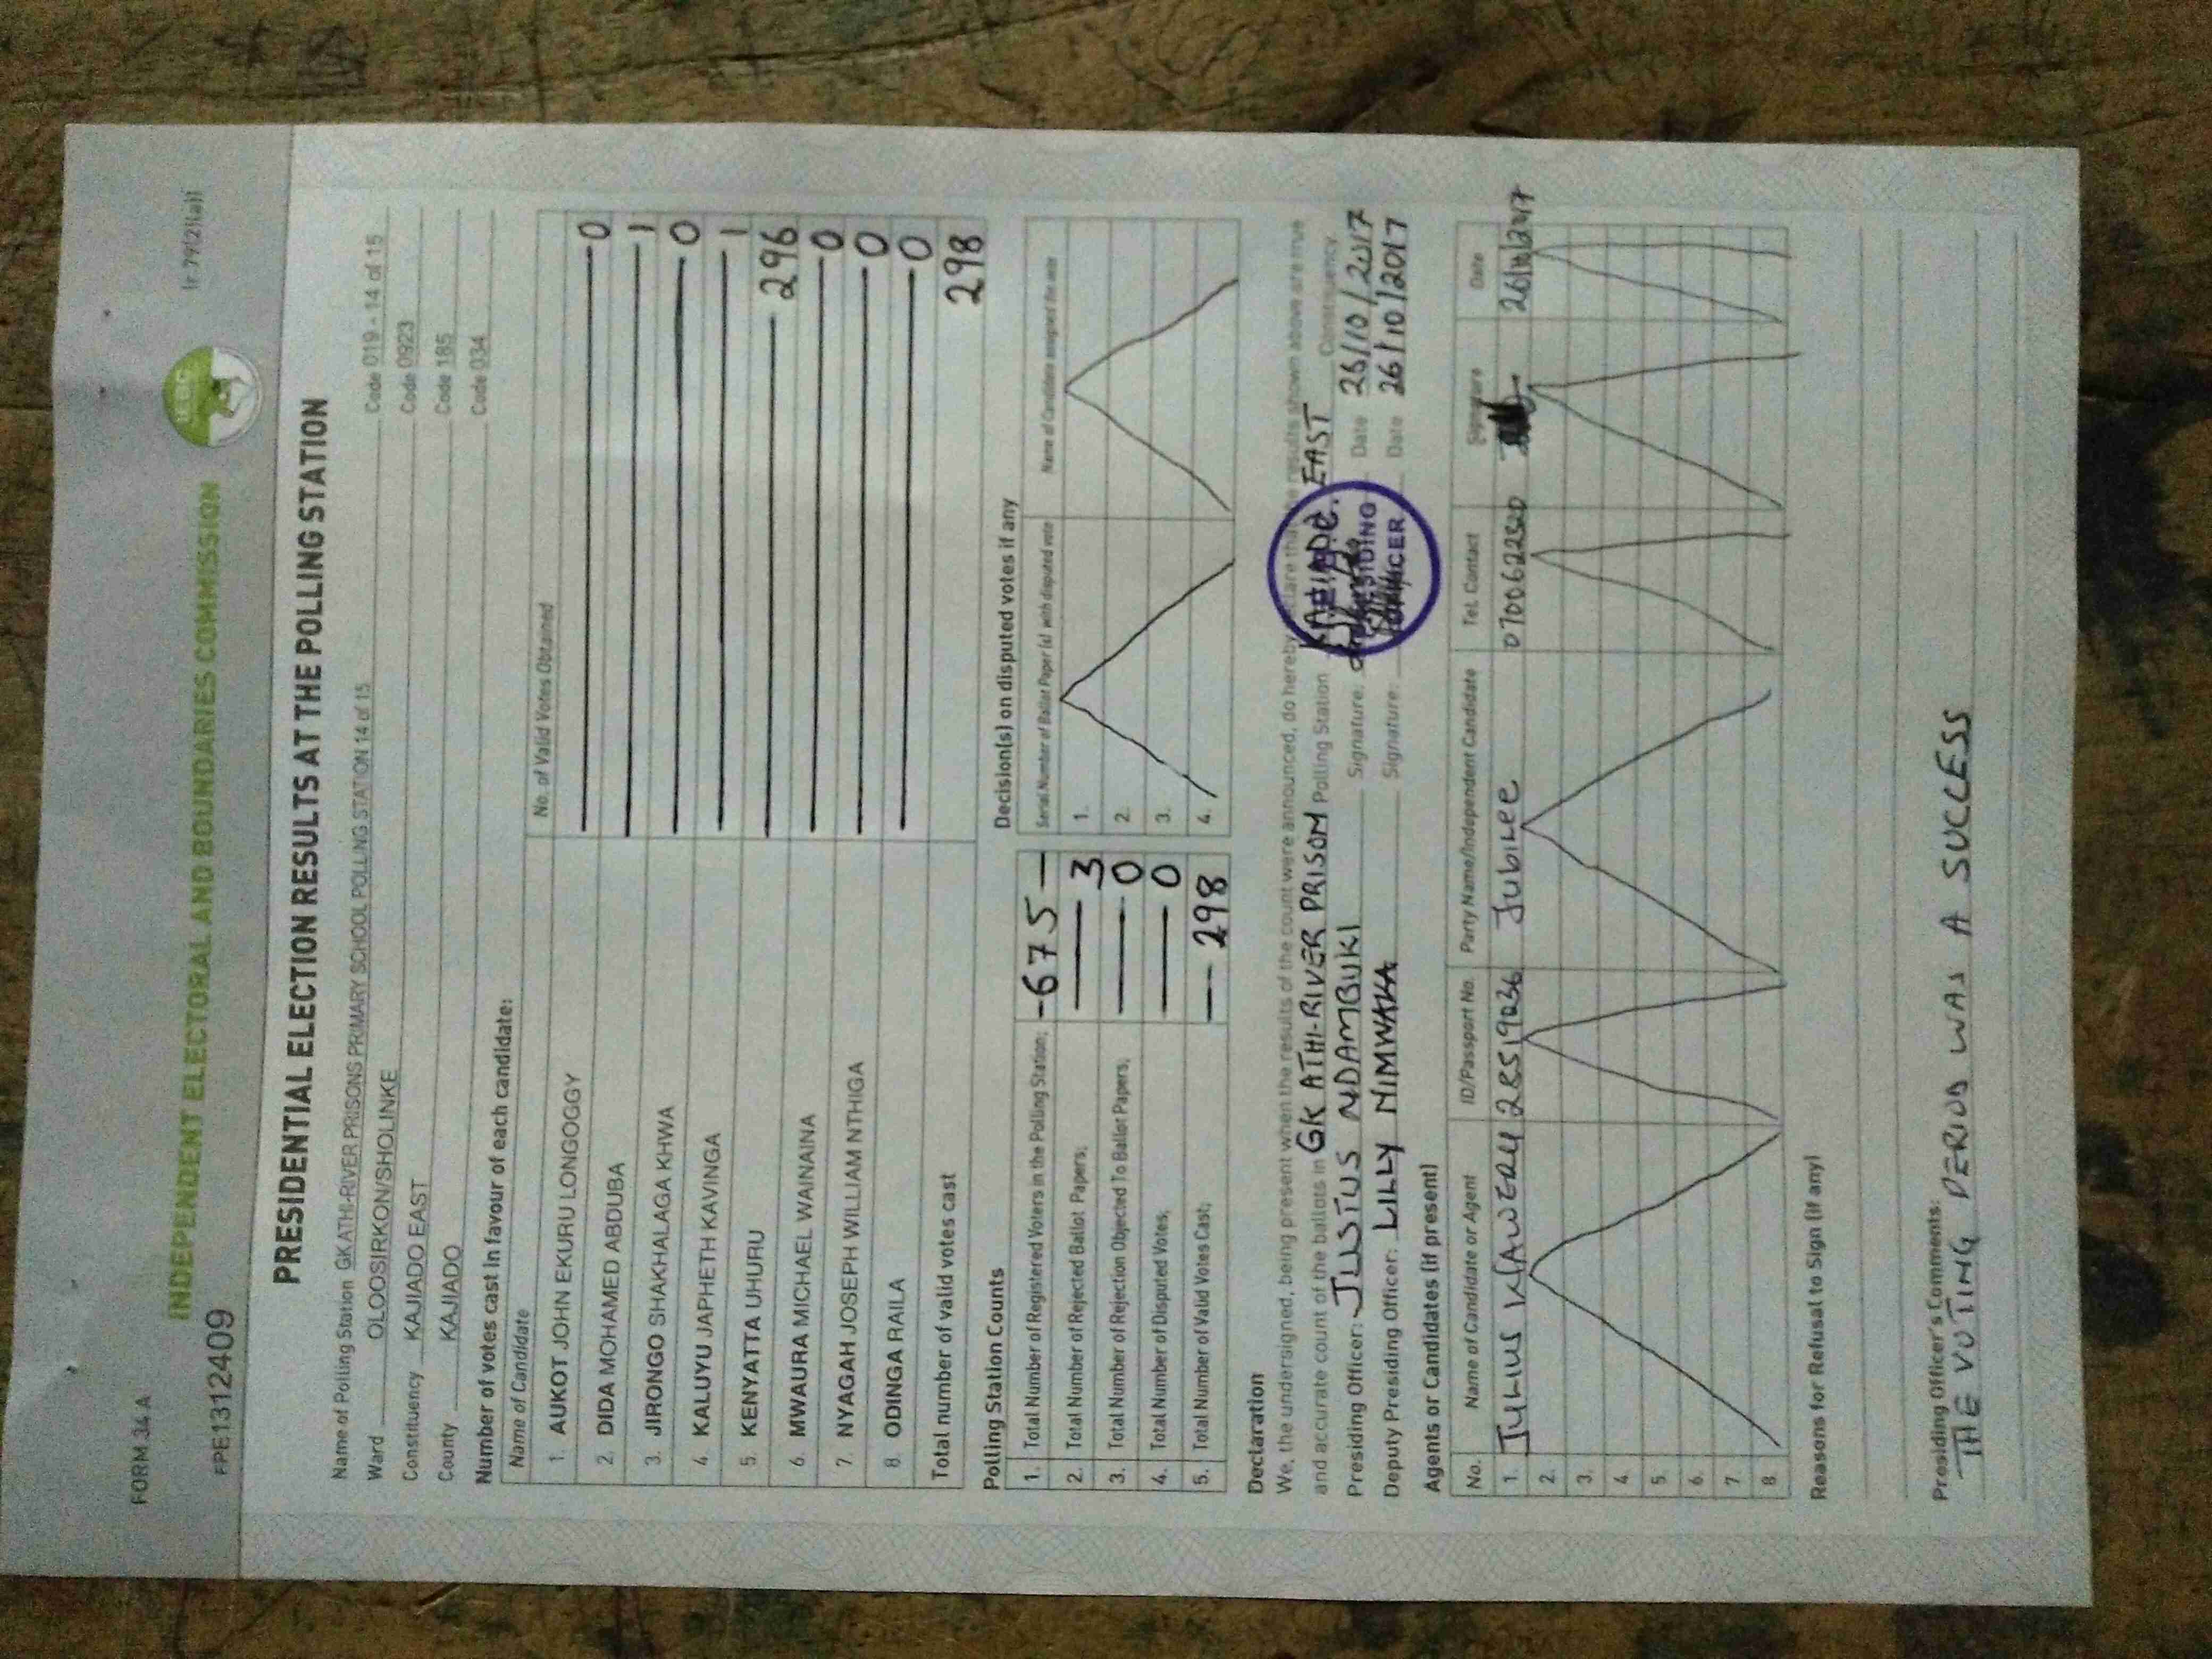 FORM 34 A
(r 79(2)(a))
INDEPENDENT ELECTORAL AND BOUNDARIES COMMISSION
IEBC
PPE1312409
PRESIDENTIAL ELECTION RESULTS AT THE POLLING STATION
Name of Polling Station GK ATHI-RIVER PRISONS PRIMARY SCHOOL POLLING STATION 14 of 15 Code 019 - 14 of 15
Ward OLOOSIRKON/SHOLINKE Code 0923
Constituency KAJIADO EAST Code 185
County KAJIADO Code 034
Number of votes cast in favour of each candidate:
Name of Candidate No. of Valid Votes Obtained
1. AUKOT JOHN EKURU LONGOGGY 0
2. DIDA MOHAMED ABDUBA 1
3. JIRONGO SHAKHALAGA KHWA 0
4 KALUYU JAPHETH KAVINGA 1
5. KENYATTA UHURU 296
6. MWAURA MICHAEL WAINAINA 0
7. NYAGAH JOSEPH WILLIAM NTHIGA 0
8. ODINGA RAILA 0
Total number of valid votes cast 298
Polling Station Counts
1. Total Number of Registered Voters in the Polling Station; -675-
2. Total Number of Rejected Ballot Papers; 3
3. Total Number of Rejection Objected To Ballot Papers; 0
4. Total Number of Disputed Votes; 0
5. Total Number of Valid Votes Cast; 298
Decision(s) on disputed votes if any
Serial Number of Ballot Paper (s) with disputed vote Name of Candidate assigned the vote
1.
2.
3.
4.
Declaration
We, the undersigned, being present when the results of the count were announced, do hereby declare that the results shown above are true
and accurate count of the ballots in GK ATHI-RIVER PRISON Polling Station EAST Constituency.
Presiding Officer: JUSTUS NDAMBUKI Signature: Date 26/10/2017
Deputy Presiding Officer: LILLY Signature: Date 26/10/2017
PRESIDING
OFFICER
Agents or Candidates (if present)
No. Name of Candidate or Agent ID/Passport No. Party Name/Independent Candidate Tel. Contact Signature Date
1. JULIUS KAWERU 28519036 Jubilee 0700622520 26/10/2017
2.
3.
4.
5.
6.
7.
8.
Reasons for Refusal to Sign (if any)
Presiding Officer's Comments:
THE VOTING PERIOD WAS A SUCCESS